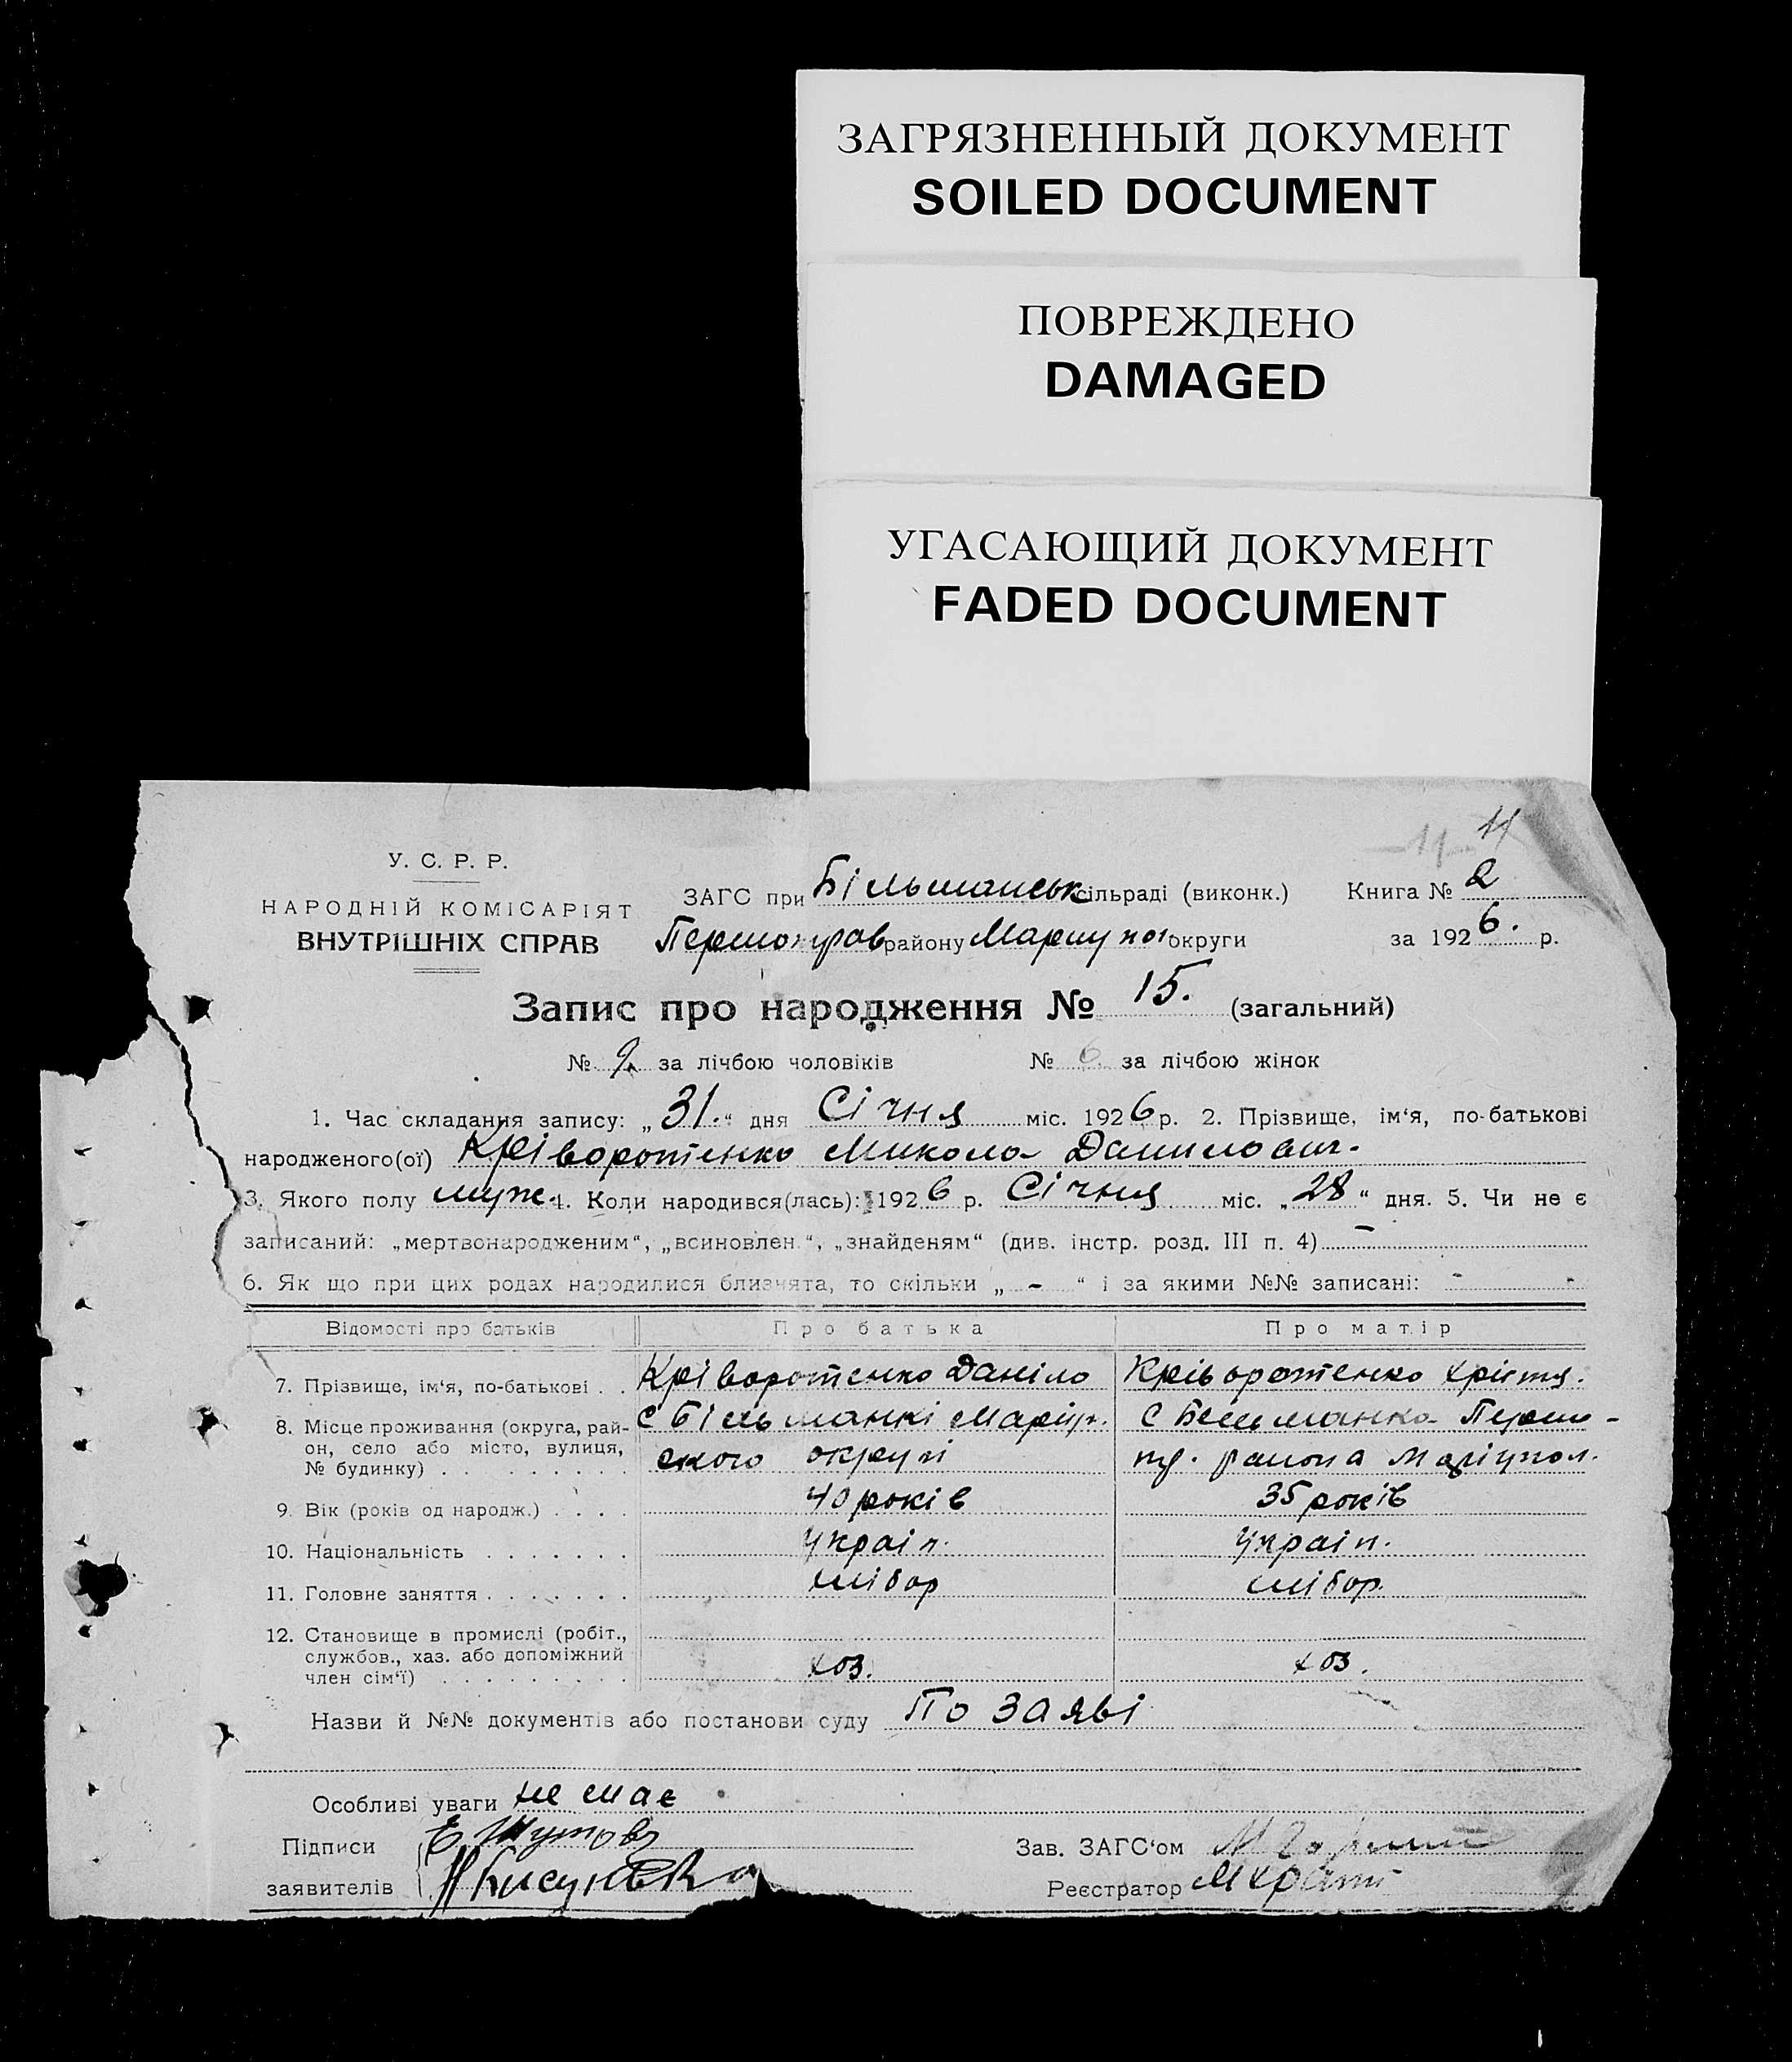 ЗАГРЯЗНЕННЫЙ ДОКУМЕНТ
SOILED DOCUMENT
ПОВРЕЖДЕНО
DAMAGED
УГАСАЮЩИЙ ДОКУМЕНТ
FADED DOCUMENT
11 11
У. С. Р. Р.
НАРОДНІЙ КОМІСАРІЯТ
ВНУТРІШНІХ СПРАВ
ЗАГС при Більманськ сільраді (виконк.) Книга № 2
району Маріупол округи за 1926. р.
Запис про народження № 15. (загальний)
№ 9. за лічбою чоловіків № 6. за лічбою жінок
1. Час складання запису: „31.“ дня Січня міс. 1926 р. 2. Прізвище, ім‘я, по-батькові
народженого(ої) Кріворотенко Микола Данилович.
3. Якого полу муж. 4. Коли народився(лась): 1926 р. Січня міс. „28“ дня. 5. Чи не є
записаний: „мертвонародженим“, „всиновлен.“, „знайденям“ (див. інстр. розд. III п. 4) —
6. Як що при цих родах народилися близнята, то скільки „ - “ і за якими №№ записані: - -
Відомості про батьків Про батька Про матір
7. Прізвище, ім‘я, по-батькові . . Кріворотенко Даніло Кріворотенко Хрістя.
8. Місце проживання (округа, рай-
он, село або місто, вулиця,
№ будинку) . . . . . . . . . с Більманкі Маріуп.
ского округі
с Бельманка Першо-
тр. района Маріупол.
9. Вік (років од народж.) . . . . 40 років 35 років
10. Національність . . . . . . . Україн. Україн.
11. Головне заняття . . . . . . . хлібор хлібор.
12. Становище в промислі (робіт.,
службов., хаз. або допоміжний
член сім‘ї) . . . . . . . . . хоз. хоз.
Назви й №№ документів або постанови суду По заяві
Особливі уваги не має
Підписи
заявителів
Зав. ЗАГС‘ом
Реєстратор